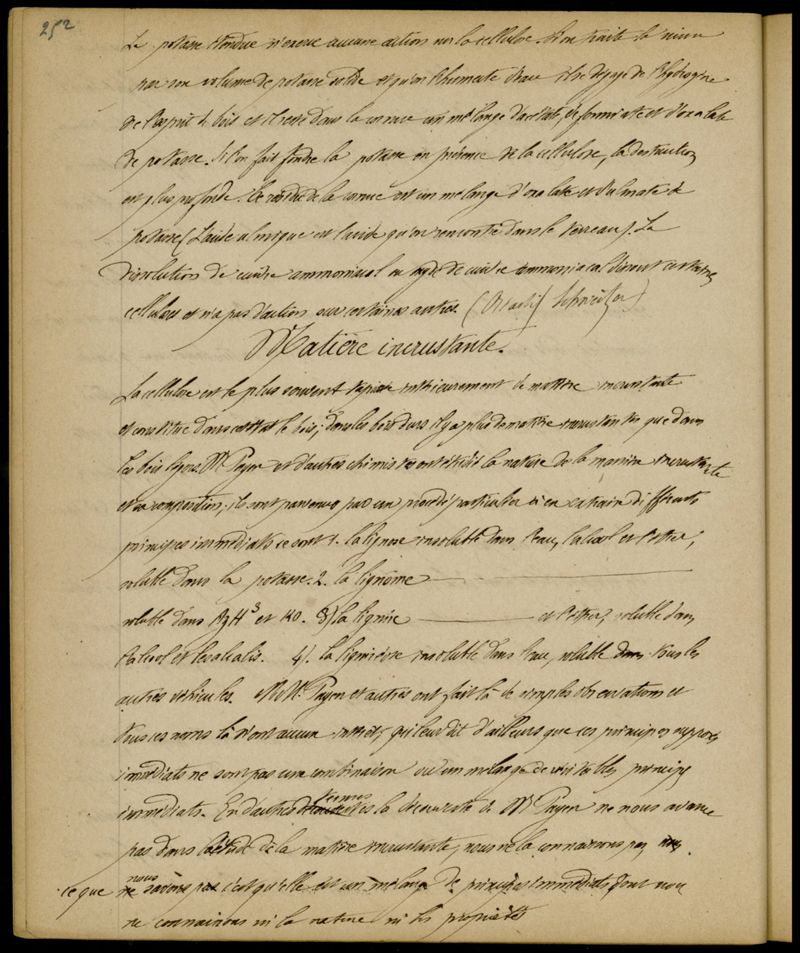 252
La potasse étendue n'exerce aucune action sur la cellulose. Si on traite la
par son volume de potasse solide et qu'on l'humecte d'eau il se dégage de l'hydrogène
de l'esprit de bois et il reste dans la cornue un mélange d'acétate, de formiate et d'oxalate
de potasse. Si l'on fait fondre la potasse en présence de la cellulose, la destruction
est plus profonde. Le résidu de la cornue est un mélange d'oxalate et d'ulmate de
potasse (L'acide ulmique est l'acide qu'on rencontre dans le terreau). La
dissolution de cuivre ammoniacal ou de cuivre ammoniacal dissout certaines
celluloses et n'a pas d'action sur certaines autres. (Réactif Schweitzer)
Matière incrustante.
La cellulose est le plus souvent tapissée intérieurement de matière incrustante
et constitue dans cet état le bois; dans les bois durs il y a plus de matière incrustante que dans
les bois légers. Mr Payen et d'autres chimistes ont étudié la nature de la matière incrustante
et sa composition; ils sont parvenus par un procédé particulier à en extraire différents
principes immédiats ce sont 1. la lignose insoluble dans l'eau, l'alcool et l'éther,
soluble dans la potasse. 2. la lignone
soluble dans AzH3 et KO. 3) la lignine et l'éther, soluble dans
l'alcool et les alcalis. 4). la ligniréose insoluble dans l'eau, soluble dans tous les
autres véhicules. MMrs Payen et autres ont fait là de simples observations et
tous ces noms là n'ont aucun intérêt; qui leur dit d'ailleurs que ces principes
immédiats ne sont pas une combinaison ou un mélange de véritables principes
immédiats. En d'autres termes la découverte de Mr Payen ne nous avance
pas dans l'étude de la matière incrustante, nous ne la connaissons pas
ce que nous savons c'est qu'elle est un mélange de principes immédiats dont nous
ne connaissons ni la nature ni les propriétés